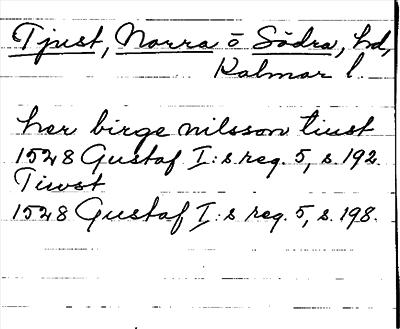 Tjust, Norra o Södra, hd,
Kalmar l.
her birge nilsson tiust
1528 Gustaf I:s reg. 5, s. 192.
Tiwst
1528 Gustaf I:s reg. 5, s. 198.